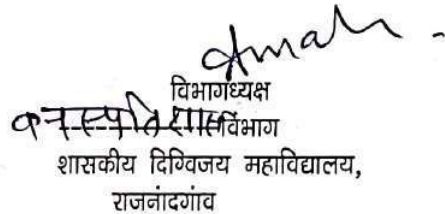 विभागध्यक्ष
वनस्पतिशास्त्र विभाग
शासकीय दिग्विजय महाविद्यालय,
राजनांदगांव